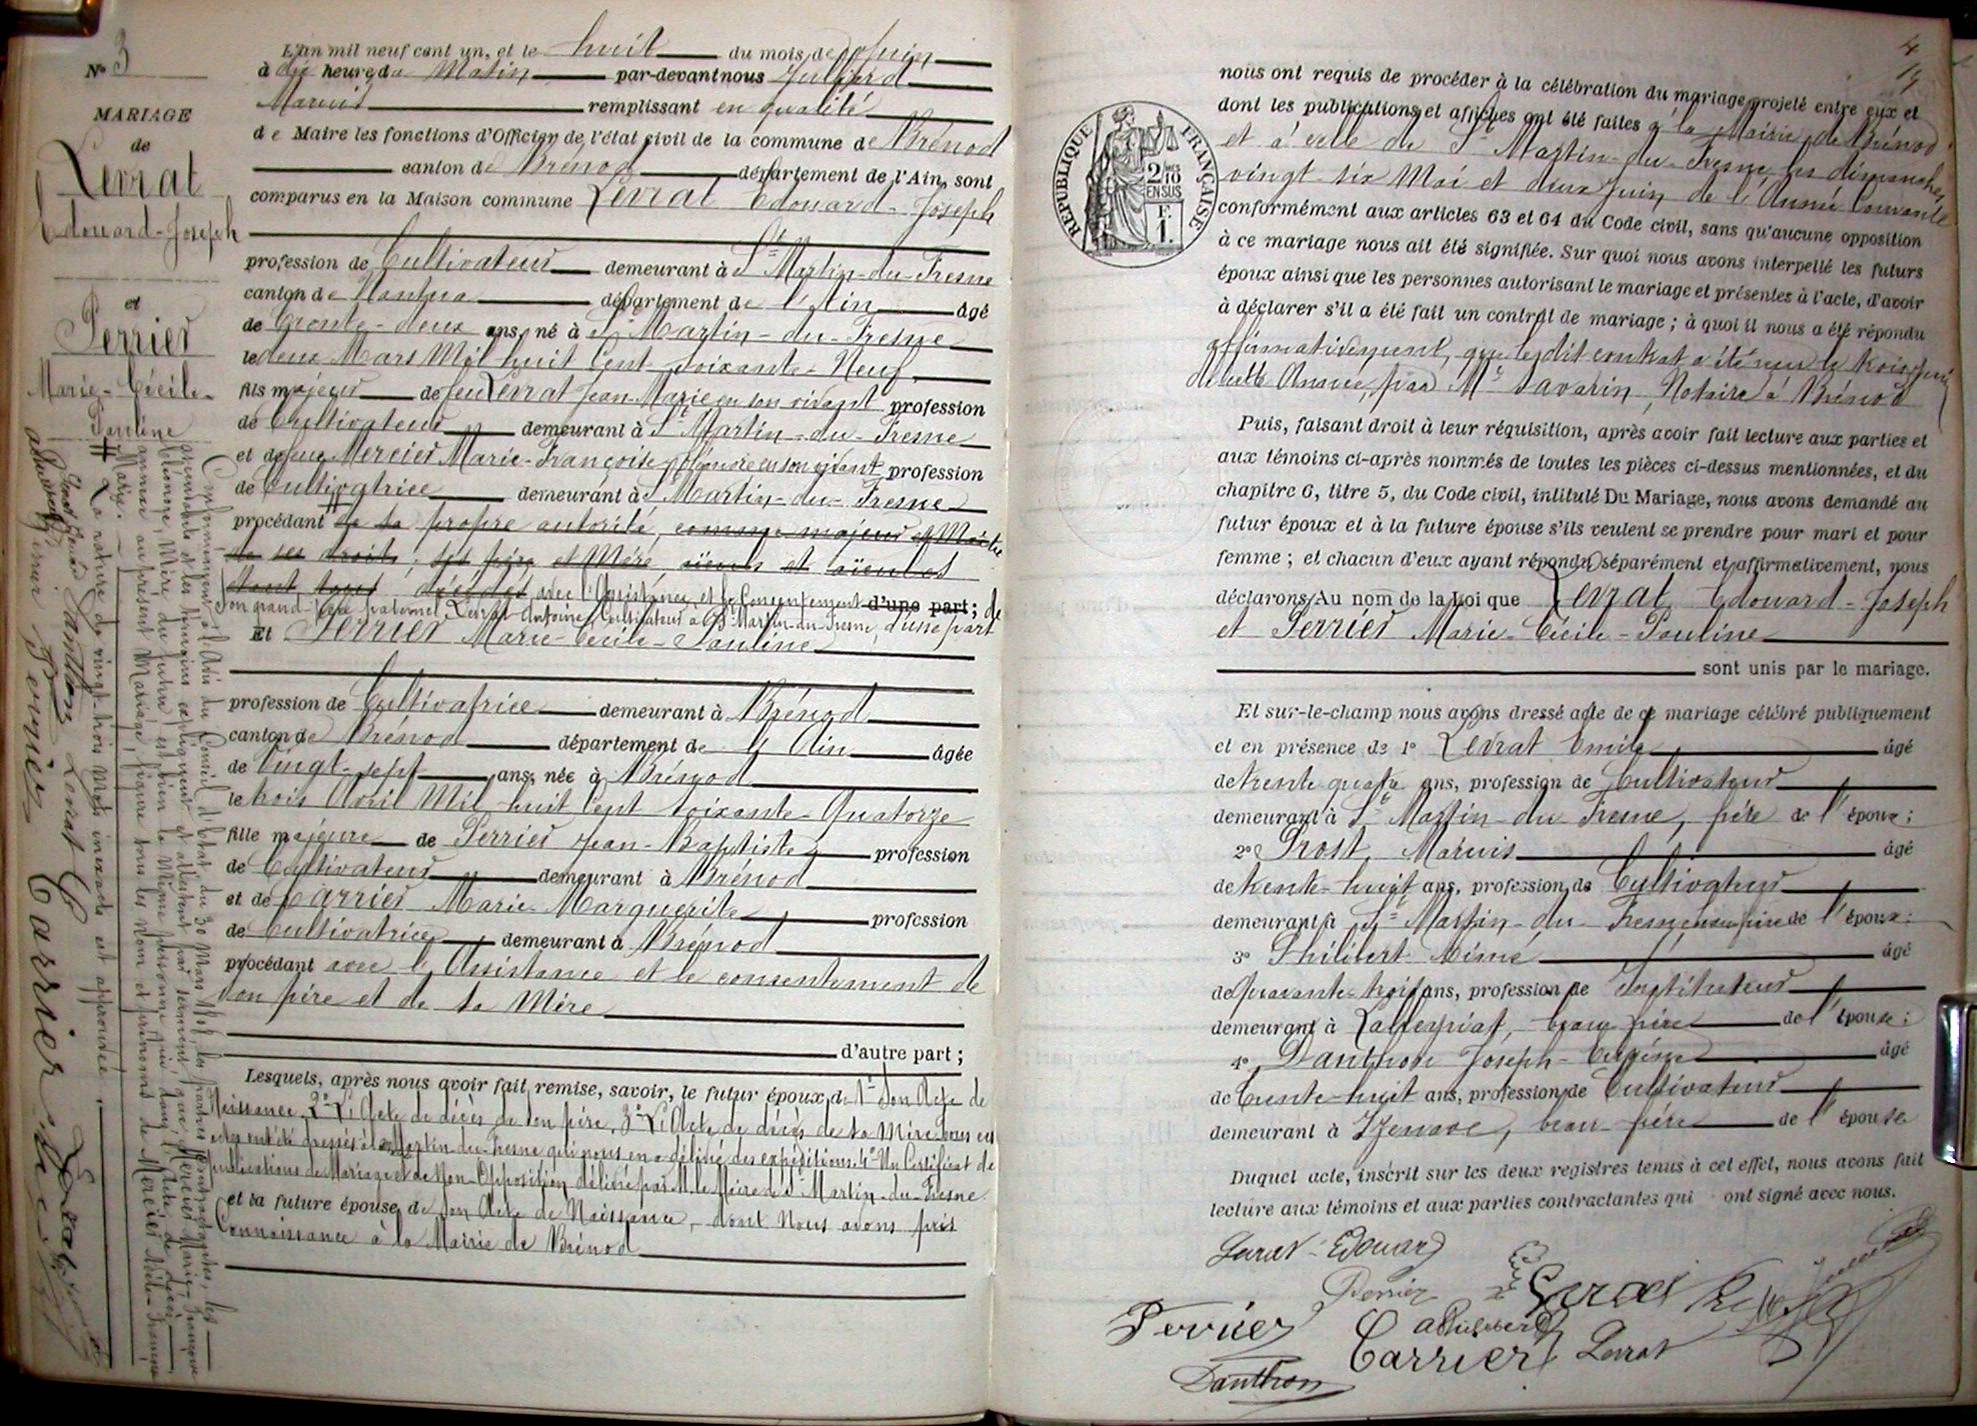 N° 3
MARIAGE
de
Levrat
Edouard-Joseph
et
Perrier
Marie-Cécile-
Pauline
L'an mil neuf cent un, et le huit du mois de Juin
à dix heures du Matin par-devant nous Juillard
Marius remplissant en qualité
de Maire les fonctions d'Officier de l'état civil de la commune de Brénod
canton de Brénod département de l'Ain, sont
comparus en la Maison commune Levrat Edouard-Joseph
profession de Cultivateur demeurant à St Martin-du-Fresne
canton de Nantua département de l'Ain âgé
de trente-deux ans, né à St Martin-du-Fresne
le deux Mars Mil huit Cent soixante-Neuf,
fils majeur de feu Levrat Jean-Marie en son vivant profession
de Cultivateur demeurant à St Martin-du-Fresne
et de feue Mercier Marie-Françoise-Eléonore en son vivant profession
de Cultivatrice demeurant à St Martin-du-Fresne
procédant de sa propre autorité, comme majeur et Maître
de ses droits; ses père et Mère, aïeuls et aïeules
étant tous décédés avec l'Assistance et le Consentement d'une part; de
son grand-père paternel Levrat Antoine, Cultivateur à St-Martin-du-Fresne, d'une part
Et Perrier Marie-Cécile-Pauline
profession de Cultivatrice demeurant à Brénod
canton de Brénod département de l'Ain âgée
de vingt-sept ans, née à Brénod
le trois Avril Mil huit Cent soixante-Quatorze
fille majeure de Perrier Jean-Baptiste profession
de Cultivateur demeurant à Brénod
et de Carrier Marie-Marguerite profession
de Cultivatrice demeurant à Brénod
procédant avec l'Assistance et le consentement de
son père et de sa Mère
d'autre part;
Lesquels, après nous avoir fait remise, savoir, le futur époux, de 1° Son Acte de
Naissance, 2° L'Acte de décès de son père, 3° L'Acte de décès de sa Mère, tous ces
actes ont été dressés à St Martin-du-Fresne qui nous en a délivré des expéditions 4° Un Certificat de
publications de Mariage et de Non-Opposition délivré par M. le Maire de St-Martin-du-Fresne
et la future épouse, de Son Acte de Naissance, dont Nous avons pris
Connaissance à la Mairie de Brénod
Conformément à l'Avis du Conseil d'Etat du 30 Mars 1808, les parties contractantes, les
consentants et les témoins expliquent et attestent par serment que, Mercier Marie-Françoise
Eléonore, Mère du futur, est bien la Même personne qui, dans l'Acte de décès
annexé au présent Mariage, figure sous les Nom et prénoms de Mercier Noële-Françoise
Marie.
La rature de vingt-trois Mots inexacts est approuvée
Danthon Levrat
Perrier Carrier
nous ont requis de procéder à la célébration du mariage projeté entre eux et
dont les publications et affiches ont été faites à la Mairie de Brénod
et à celle de St Martin-du-Fresne les dimanches
vingt-six Mai et deux Juin de l'Année Courante
conformément aux articles 63 et 64 du Code civil, sans qu'aucune opposition
à ce mariage nous ait été signifiée. Sur quoi nous avons interpellé les futurs
époux ainsi que les personnes autorisant le mariage et présentes à l'acte, d'avoir
à déclarer s'il a été fait un contrat de mariage; à quoi il nous a été répondu
affirmativement, que ledit contrat a été reçu le trois Juin
de cette Année, par Me Savarin, Notaire à Brénod
RÉPUBLIQUE FRANÇAISE
2/10
EN SUS
F.
1.
Puis, faisant droit à leur réquisition, après avoir fait lecture aux parties et
aux témoins ci-après nommés de toutes les pièces ci-dessus mentionnées, et du
chapitre 6, titre 5, du Code civil, intitulé Du Mariage, nous avons demandé au
futur époux et à la future épouse s'ils veulent se prendre pour mari et pour
femme; et chacun d'eux ayant répondu séparément et affirmativement, nous
déclarons Au nom de la Loi que Levrat Edouard-Joseph
et Perrier Marie-Cécile-Pauline
sont unis par le mariage.
Et sur-le-champ nous avons dressé acte de ce mariage célébré publiquement
et en présence de 1° Levrat Emile âgé
de trente quatre ans, profession de Cultivateur
demeurant à St Martin-du-Fresne, frère de l'époux;
2° Prost Marius âgé
de trente-huit ans, profession de Cultivateur
demeurant à St Martin-du-Fresne beau-frère de l'époux;
3° Philibert Aimé âgé
de quarante-trois ans, profession de Instituteur
demeurant à Lalleyriat, beau-frère de l'épouse;
4° Danthon Joseph-Eugène âgé
de trente-huit ans, profession de Cultivateur
demeurant à Izenave, beau-frère de l'épouse
Duquel acte, inscrit sur les deux registres tenus à cet effet, nous avons fait
lecture aux témoins et aux parties contractantes qui ont signé avec nous.
Levrat Edouard
Perrier
Levrat
Perrier
aPhilibert
Carrier
Levrat
Danthon